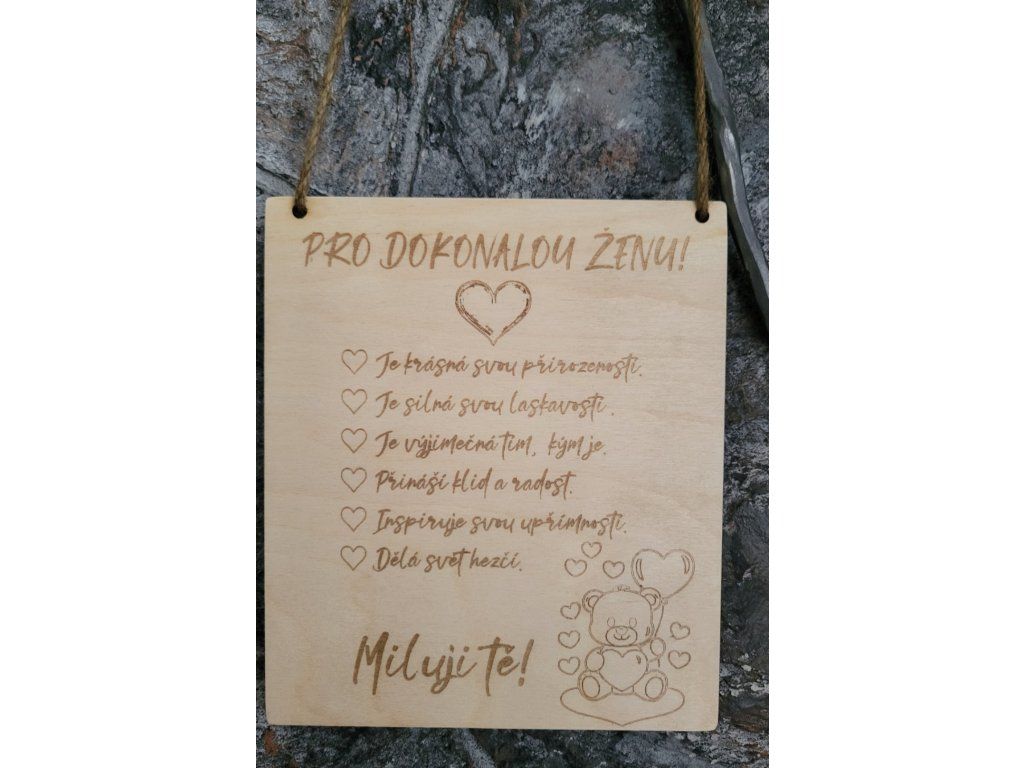 PRO DOKONALOU ŽENU!
Je krásná svou přirozeností.
Je silná svou laskavostí.
Je výjimečná tím, kým je.
Přináší klid a radost.
Inspiruje svou upřímností.
Dělá svět hezčí.
Miluji tě!